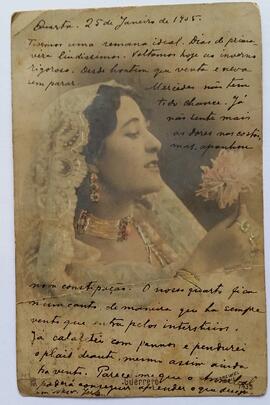 Quarta, 25 de Janeiro de 1905.
Tivemos uma semana ideal. Dias de prima-
vera lindissimos. Voltamos hoje ao inverno
rigoroso. Desde hontem que venta e neva
sem parar.
Mercedes não tem
tido chance. Já
não sente mais
as dores nas costas,
mas, apanhou
uma constipação. O nosso quarto fica
num canto, de maneira que ha sempre
vento que entra pelos intersticios.
Já calafetei com pannos e pendurei
o plaid deante, mesmo assim ainda
ha vento. Parece-me que o
Guerrero
poderá conseguir aprender o que deseja